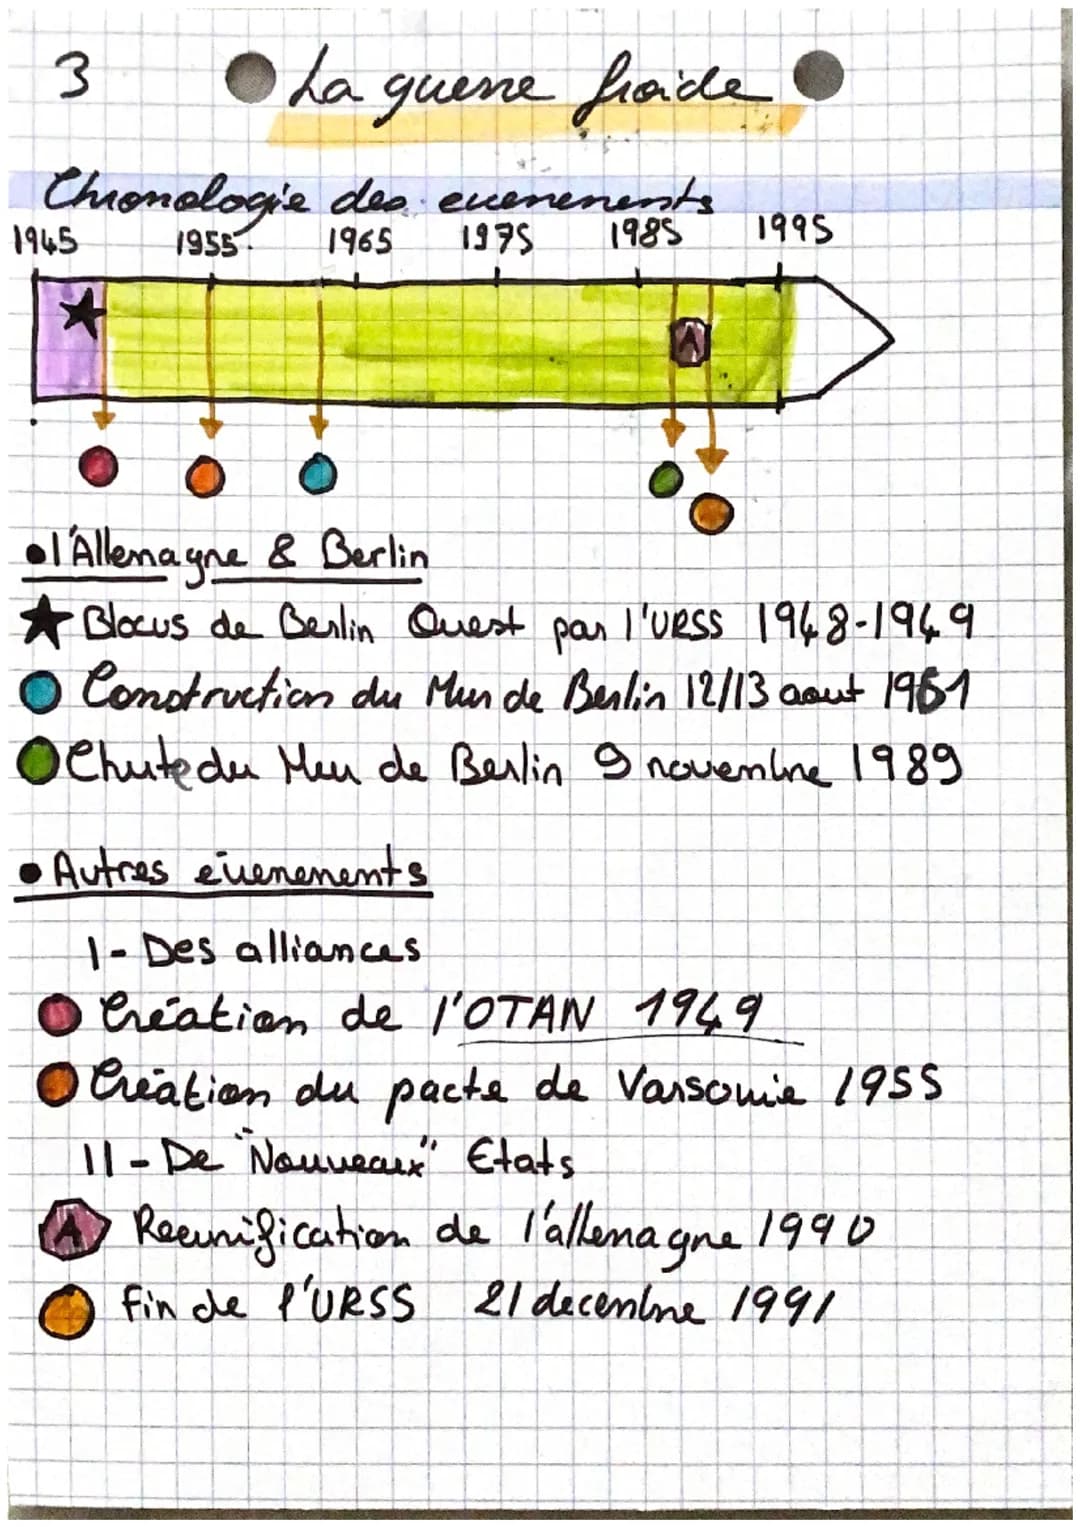 3 La guerre froide
Chronologie des evenements
1945 1955 1965 1975 1985 1995
A
• l'Allemagne & Berlin
Blocus de Berlin Ouest par l'URSS 1948-1949
Construction du Mur de Berlin 12/13 aout 1961
Chute du Mur de Berlin 9 novembre 1989
• Autres évenements
I - Des alliances
Création de l'OTAN 1949
Création du pacte de Varsovie 1955
II - De "Nouveaux" Etats
A Reunification de l'allemagne 1990
Fin de l'URSS 21 decembre 1991